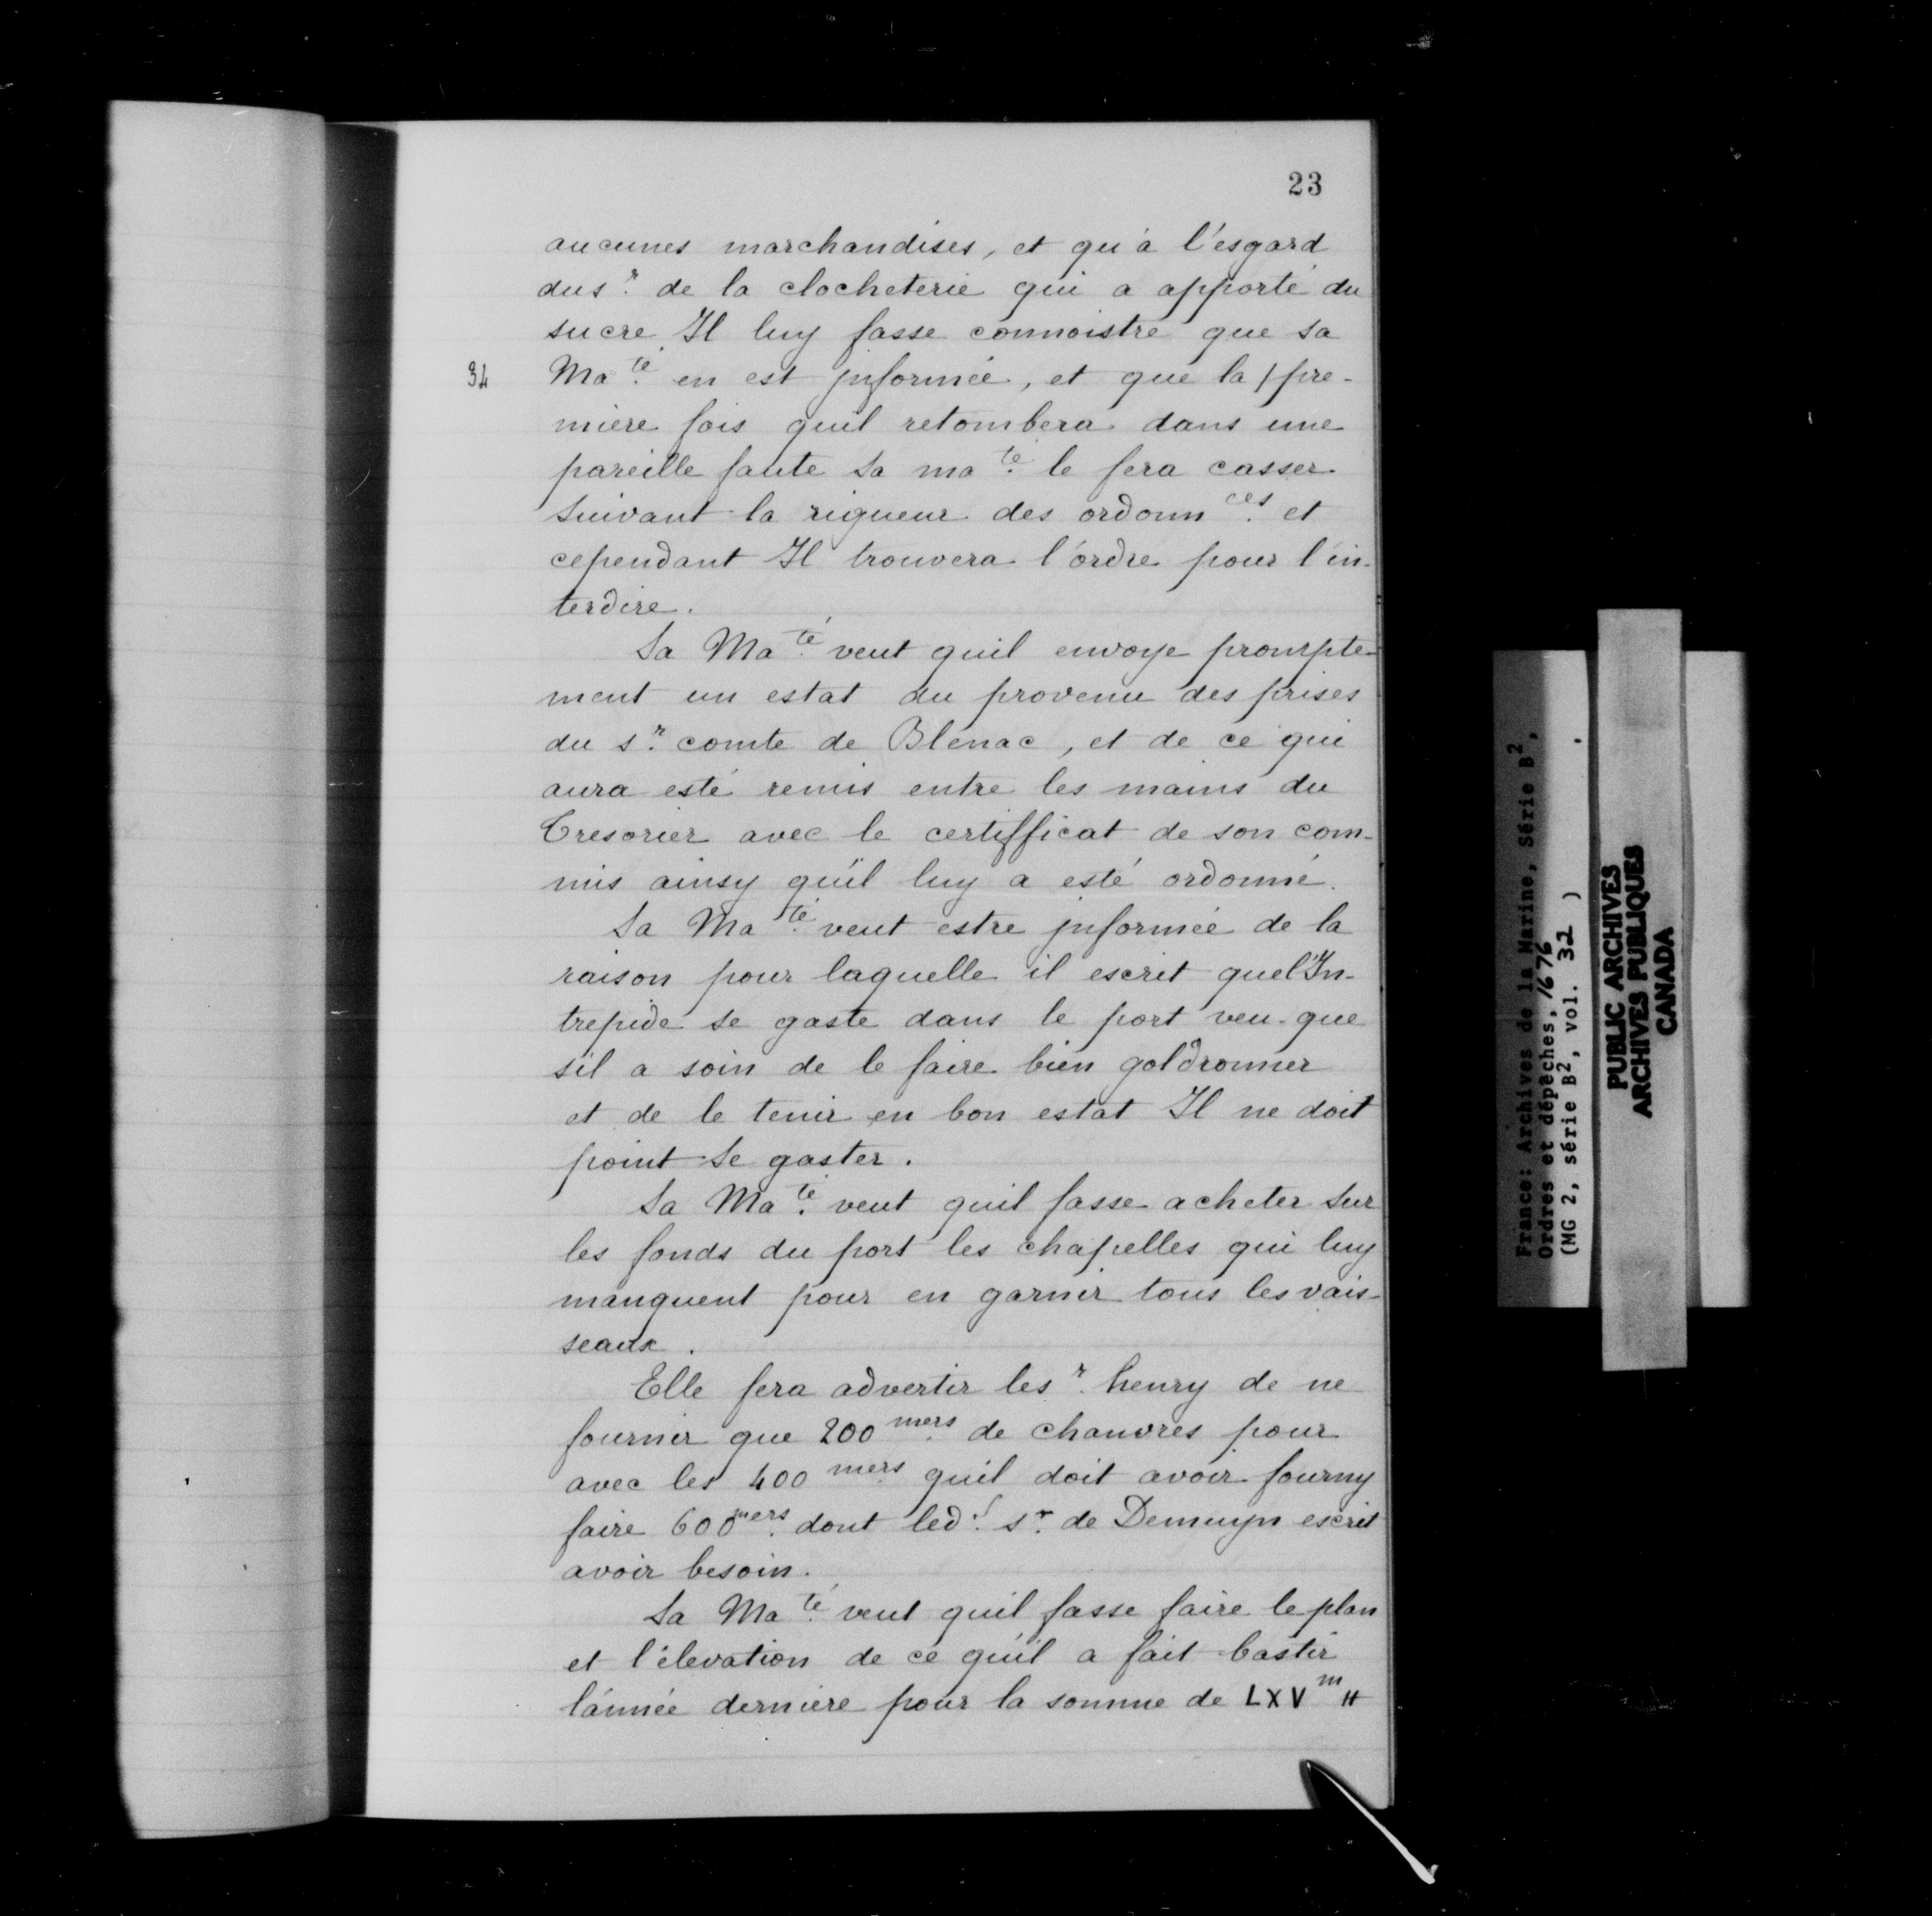 23
aucunes marchandises, et qu'à l'esgard
dus.r de la clocheterie qui a apporté du
sucre Il luy fasse connoistre que sa
34 Ma.té en est jnformée, et que la / pre-
miere fois quil retombera dans une
pareille faute sa ma.té le fera casser
suivant la rigueur des ordonn.ces et
cependant Il trouvera l'ordre pour l'in-
terdire.
Sa Ma.té veut quil envoye prompte-
ment un estat du provenu des prises
du s.r comte de Blénac, et de ce qui
aura esté remis entre les mains du
Tresorier avec le certifficat de son com-
mis ainsy qu'il luy a esté ordonné.
Sa Ma.té veut estre jnformée de la
raison pour laquelle il escrit quel'In-
trepide se gaste dans le port veu que
s'il a soin de le faire bien goldronner
et de le tenir en bon estat Il ne doit
point se gaster.
Sa Ma.té veut quil fasse acheter sur
les fonds du port les chapelles qui luy
manquent pour en garnir tous les vais-
seaux.
Elle fera advertir les.r henry de ne
fournir que 200 mers de chanvres pour
avec les 400 mers quil doit avoir fourny
faire 600 mers. dont led.t s.r de Demuyn escrit
avoir besoin.
Sa Ma.té veut quil fasse faire le plan
et l'élevation de ce qu'il a fait bastir
l'année derniere pour la somme de LXV m ₶
France: Archives de la Marine, Série B²,
Ordres et dépêches, 1676
(MG 2, série B², vol. 32 )
PUBLIC ARCHIVES
ARCHIVES PUBLIQUES
CANADA